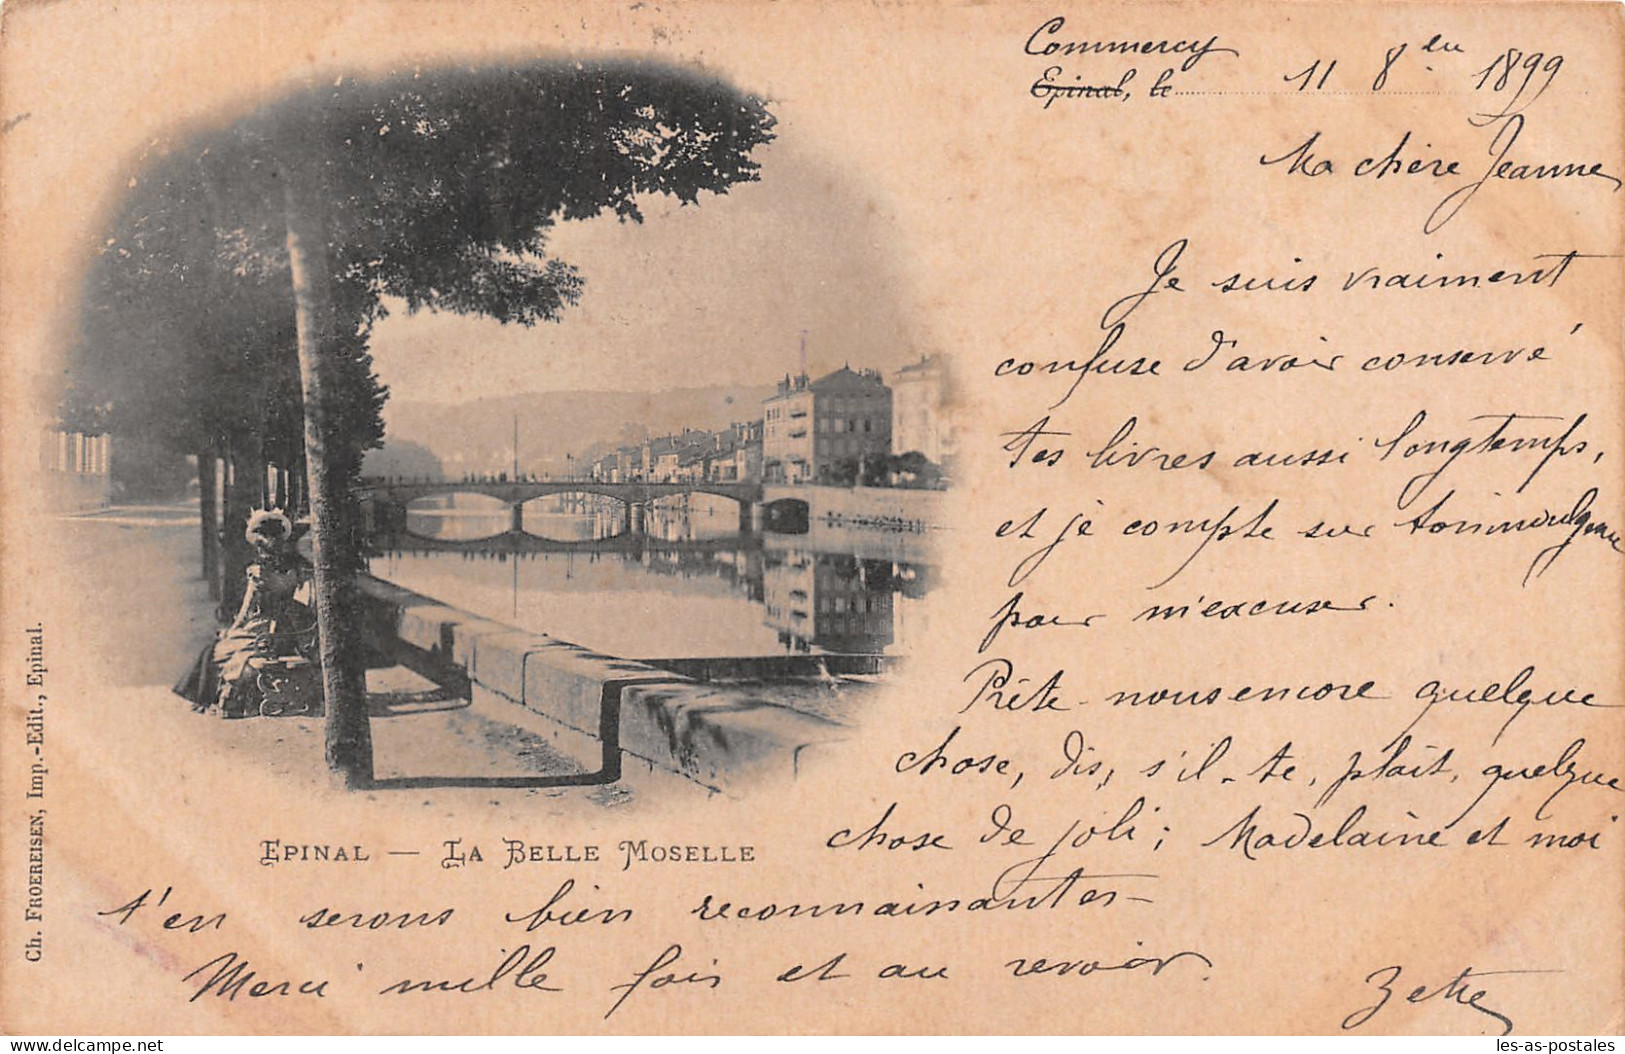 Commercy
Epinal, le 11 8bre 1899
Ma chère Jeanne
Je suis vraiment
confuse d'avoir conservé
tes livres aussi longtemps,
et je compte sur ton indulgence
pour m'excuser.
Prête-nous encore quelque
chose, dis, s'il-te, plait, quelque
chose de joli; Madelaine et moi
t'en serons bien reconnaissantes-
Merci mille fois et au revoir.
EPINAL — LA BELLE MOSELLE
Ch. FROEREISEN, Imp.-Edit., Epinal.
delcampe.net
les-as-postales